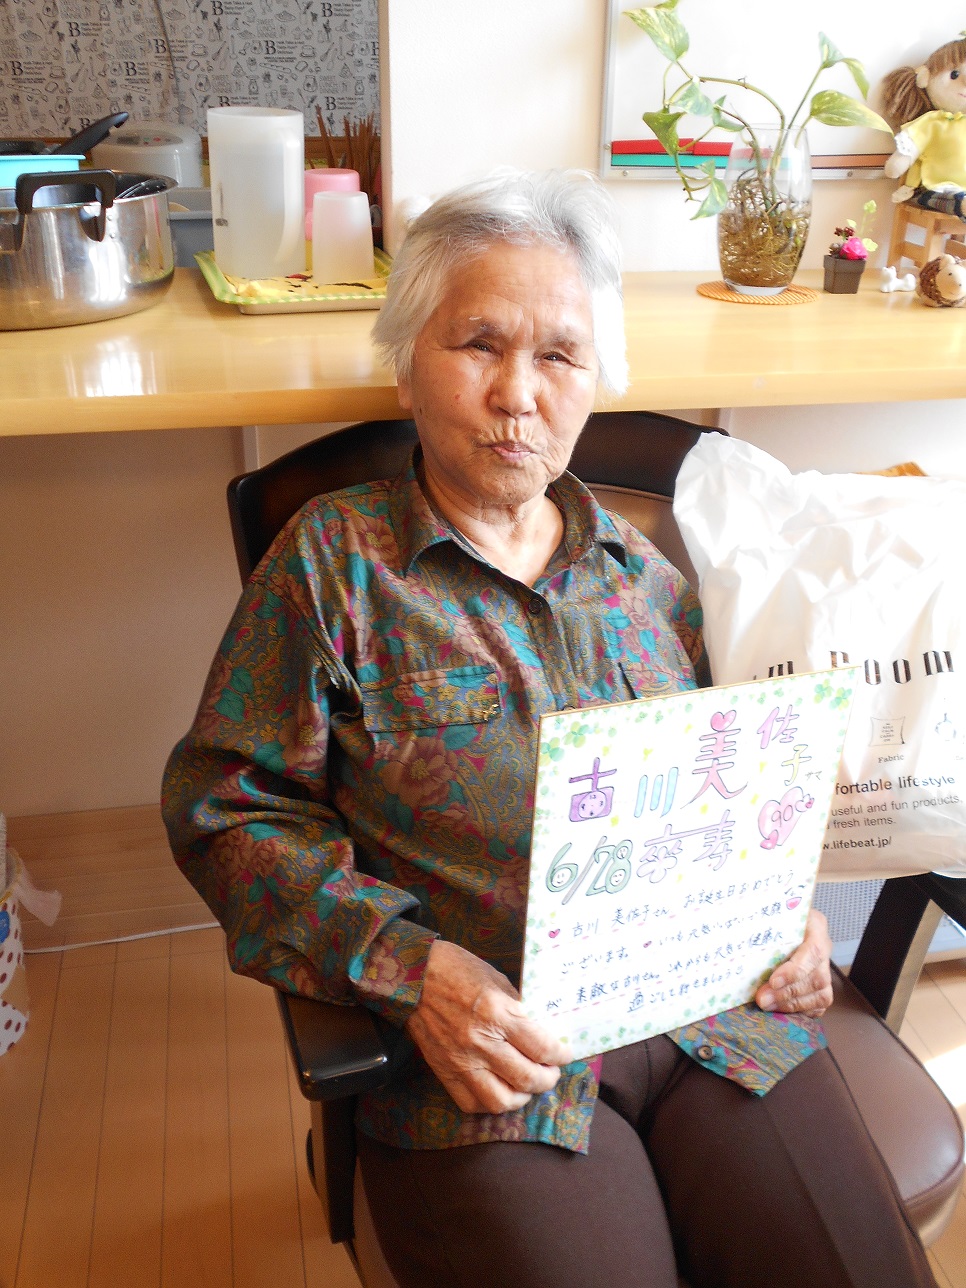 古川美佐子サマ
6/28 卒寿 90
古川 美佐子さん お誕生日おめでとう
ございます。いつも元気いっぱいで笑顔
が素敵な古川さん。これからも元気で健康に
過ごして行きましょう
m Room
Fabric
fortable lifestyle
useful and fun products,
fresh items.
w.lifebeat.jp/
B